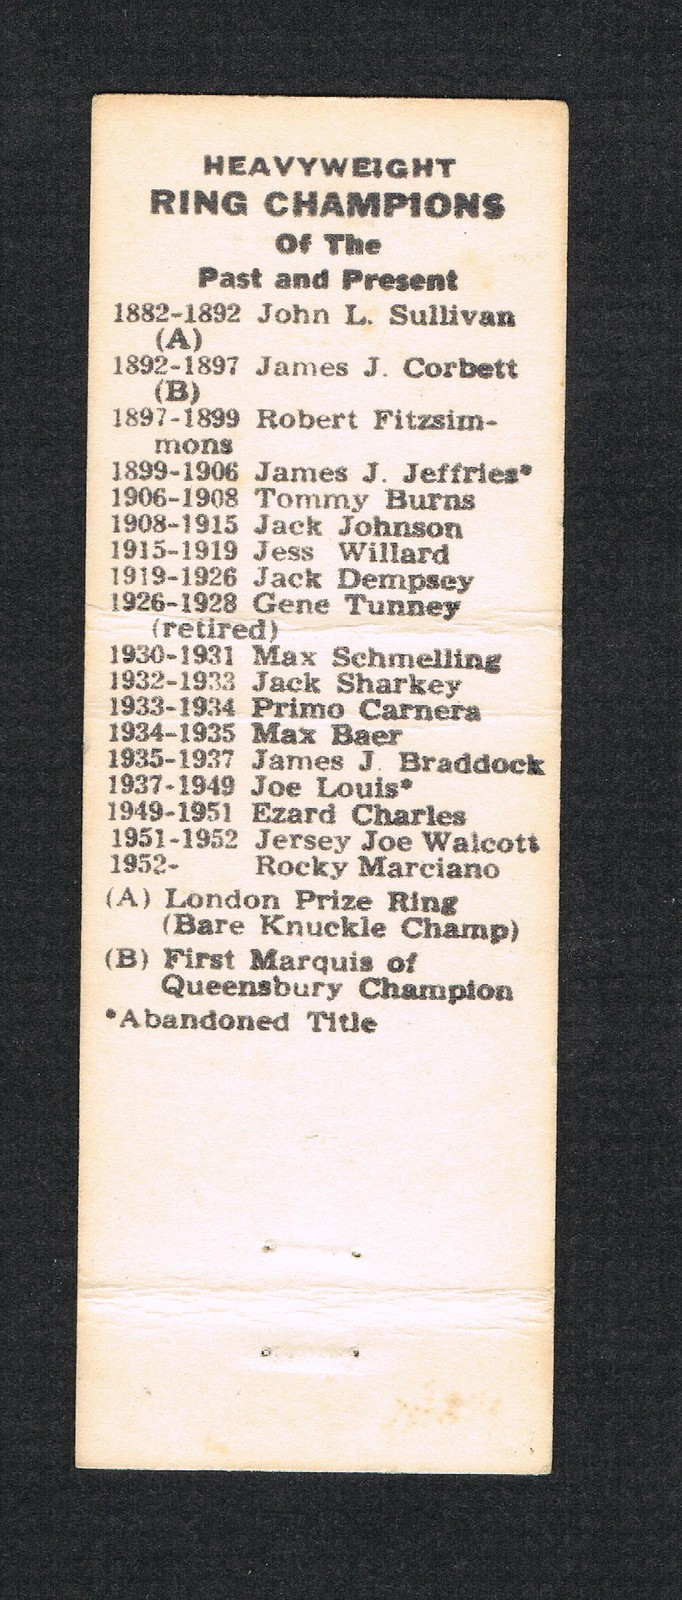 HEAVYWEIGHT
RING CHAMPIONS
Of The
Past and Present
1882-1892 John L. Sullivan
(A)
1892-1897 James J. Corbett
(B)
1897-1899 Robert Fitzsim-
mons
1899-1906 James J. Jeffries*
1906-1908 Tommy Burns
1908-1915 Jack Johnson
1915-1919 Jess Willard
1919-1926 Jack Dempsey
1926-1928 Gene Tunney
(retired)
1930-1931 Max Schmelling
1932-1933 Jack Sharkey
1933-1934 Primo Carnera
1934-1935 Max Baer
1935-1937 James J. Braddock
1937-1949 Joe Louis*
1949-1951 Ezard Charles
1951-1952 Jersey Joe Walcott
1952- Rocky Marciano
(A) London Prize Ring
(Bare Knuckle Champ)
(B) First Marquis of
Queensbury Champion
*Abandoned Title